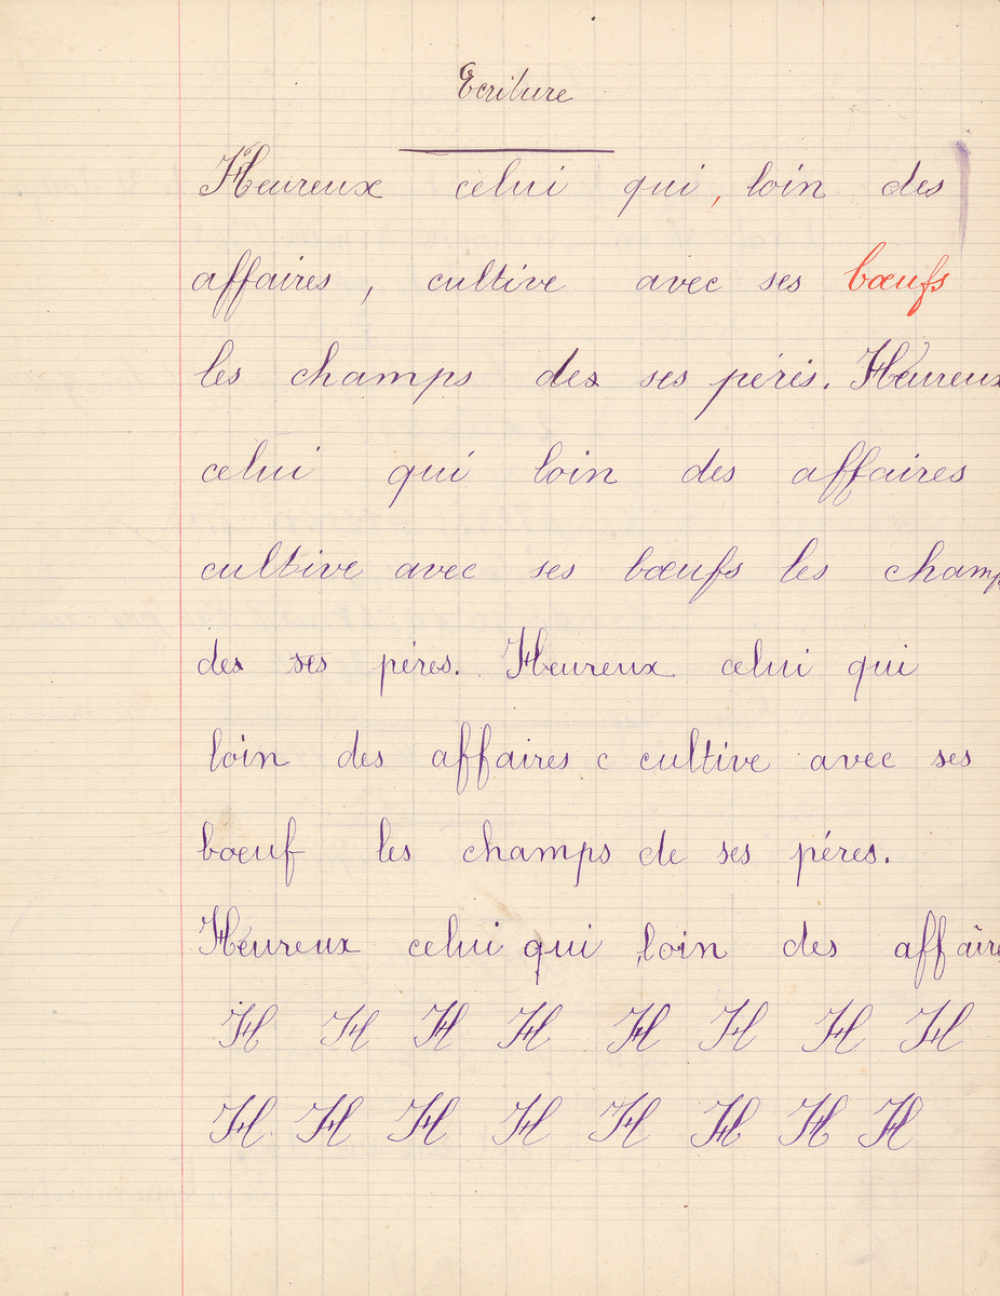 Ecriture
Heureux celui qui, loin des
affaires, cultive avec ses bœufs
les champs des ses péres. Heureux
celui qui loin des affaires
cultive avec ses bœufs les champs
des ses péres. Heureux celui qui
loin des affaires c cultive avec ses
boeuf les champs de ses péres.
Heureux celui qui loin des affaire
H H H H H H H H
H H H H H H H H